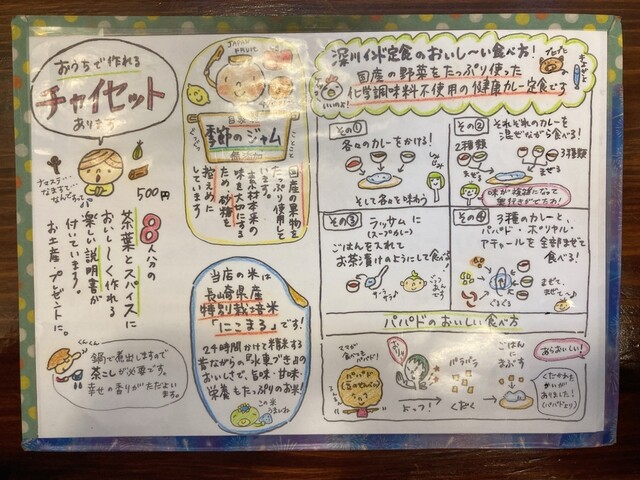 おうちで作れる
チャイセット
あります
500円
8人分の
茶葉とスパイスに
おいし〜く作れる
楽しい説明書が
付いています。
お土産・プレゼントに。
くんくん
鍋で煮出しますので
茶こしが必要です。
幸せの香りがただよい
ます。
JAPAN FRUIT
季節のジャム
国産の果物を
たっぷり使用して
います。
素材本来の
味を大切にする
ため、砂糖を
控えめに
しています
当店の米は
長崎県産
特別栽培米
「にこまる」です!
24時間かけて精米する
昔ながらの『水車づき』の
おいしさで、旨味・甘味・
栄養もたっぷりのお米!
この米
うまいわ
深川インド定食のおいし〜い食べ方!
国産の野菜をたっぷり使った
化学調味料不使用の健康カレー定食です
いいのよ!
その①
各々のカレーをかける!
そして各々を味わう
その②
それぞれのカレーを
混ぜながら食べる!
2種類
3種類
まぜる
まぜる
味が複雑になって
奥行きがでたわ!
その③
ラッサムに
(スープカレー)
ごはんを入れて
お茶漬けのようにして食べる!
サラサラ♪
その④
3種のカレーと、
パパド・ポリヤル・
アチャールを全部まぜて
食べる!
ぐるぐる
まぜて、
まぜて〜♪
パパドのおいしい食べ方
パパド
(豆のせんべい)
えっつ!
パラパラ
くだく
ごはんに
まぶす
あらおいしい!
くだかれた
かいが
ありました!
(パパドより)